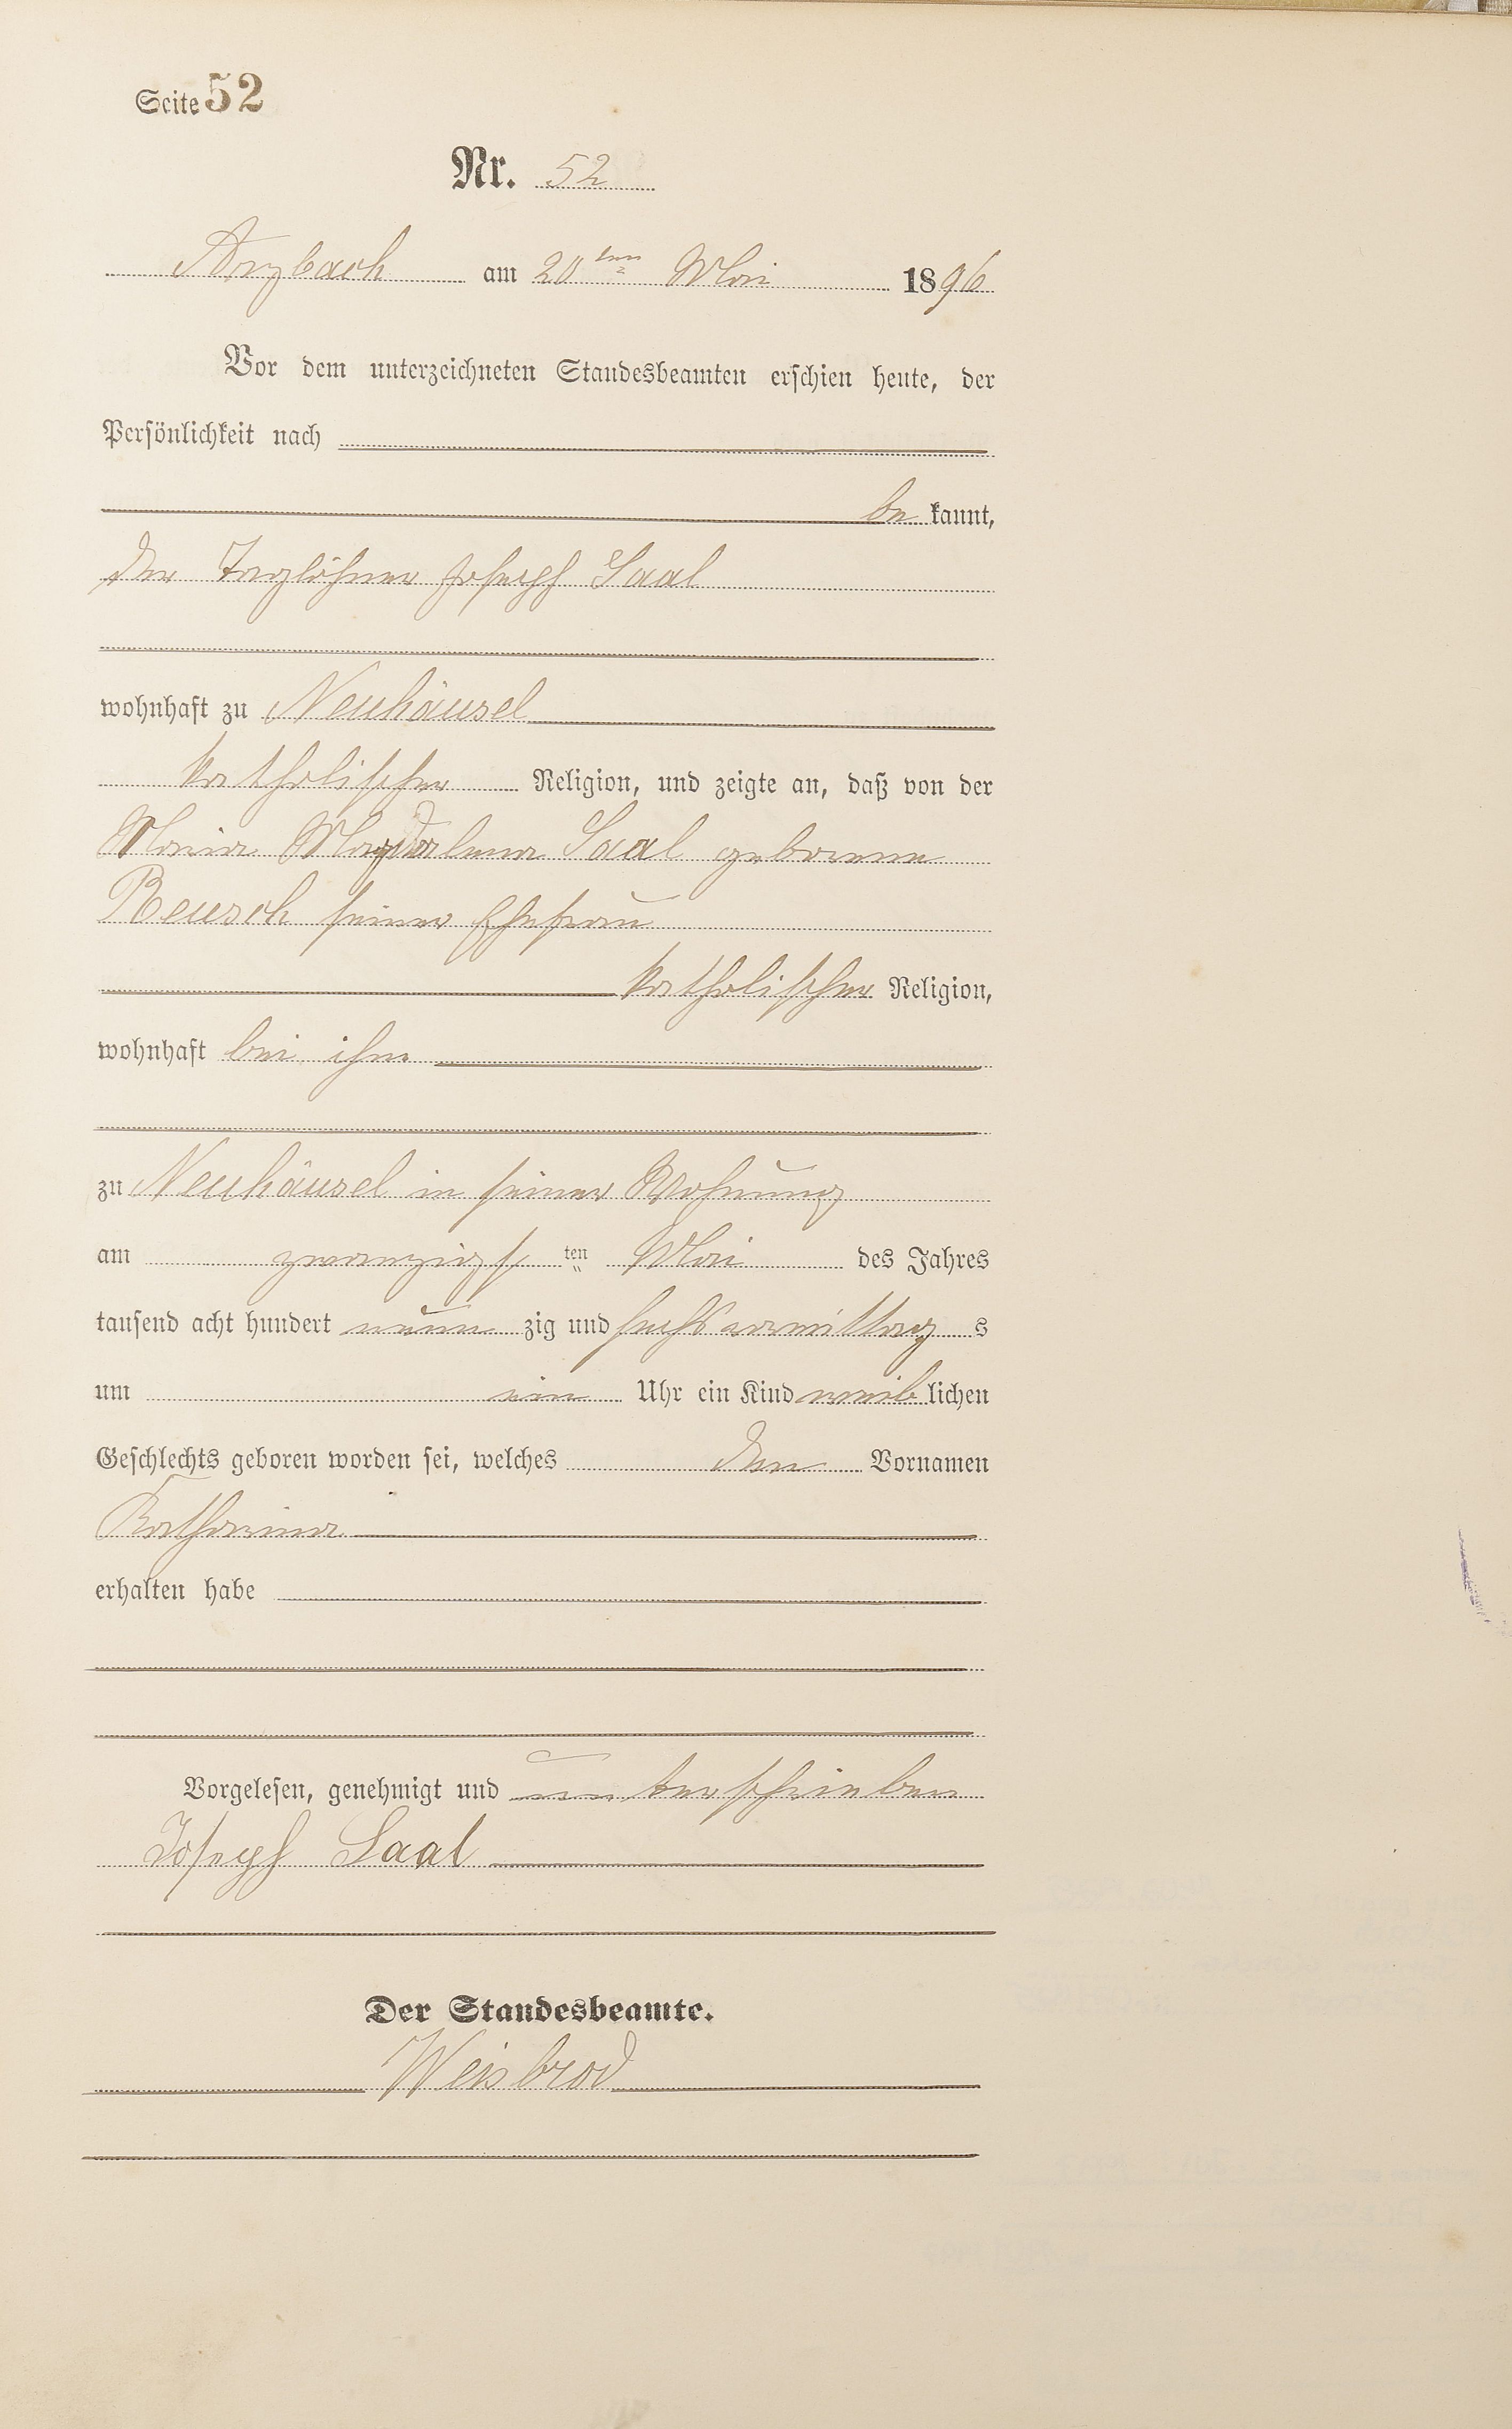 Seite 52
Nr. 52
Arzbach am 20ten Mai 1896
Vor dem unterzeichneten Standesbeamten erschien heute, der
Persönlichkeit nach
be kannt,
der Taglöhner Joseph Saal
wohnhaft zu Neuhäusel
katholischer Religion, und zeigte an, daß von der
Maria Magdalena Saal geborene
Reusch seiner Ehefrau
katholischer Religion,
wohnhaft bei ihm
zu Neuhäusel in seiner Wohnung
am zwanzigs ten Mai des Jahres
tausend acht hundert neun zig und sechs vormittag s
um ein Uhr ein Kind weib lichen
Geschlechts geboren worden sei, welches den Vornamen
Katharina
erhalten habe
Vorgelesen, genehmigt und unterschrieben
Joseph Saal
Der Standesbeamte.
Weisbrod